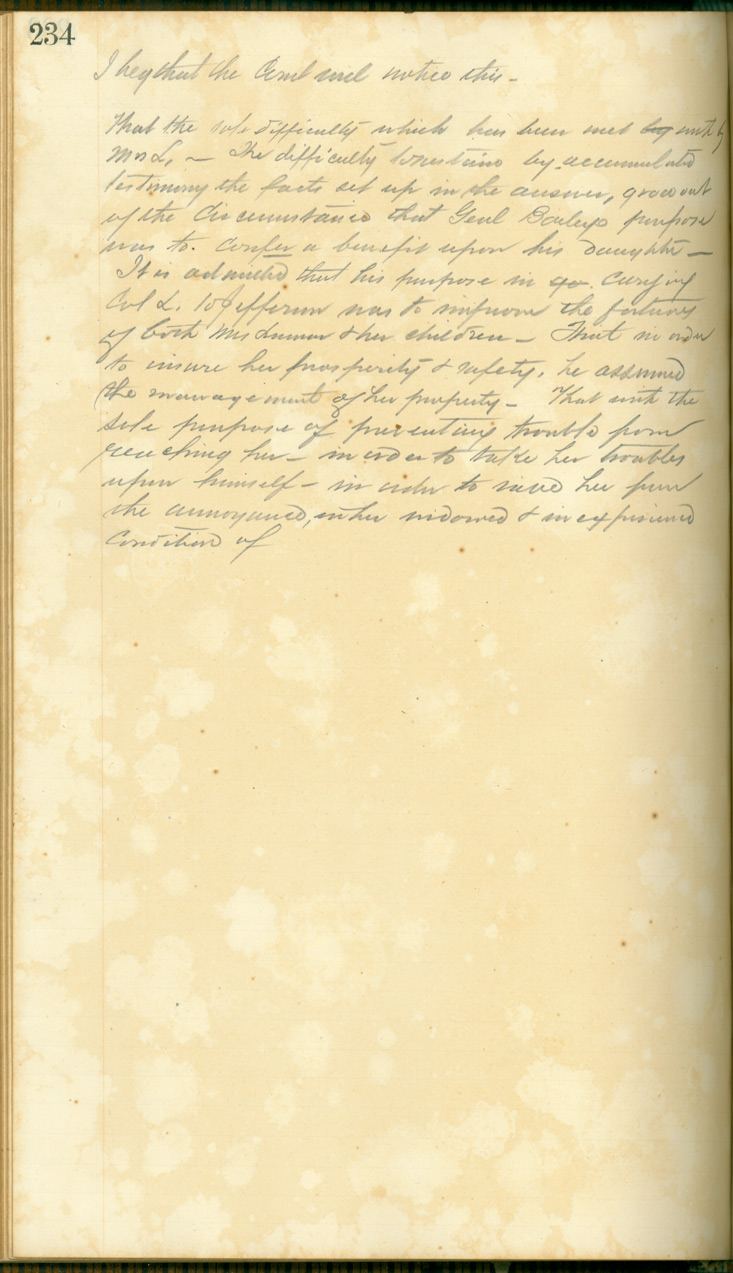 234
I beg that the Court will notice this -
That the sole difficulty which has been met by with by
Mrs L. - The difficulty to sustain by accumulated
testimony the facts set up in the answer, grows out
of the Circumstance that Genl Baileys purpose
was to confer a benefit upon his daughter -
It is admitted that his purpose in go carrying
Col L. to Jefferson was to improve the fortunes
of both Mrs & her children - That in order
to insure her prosperity & safety, he assumed
the management of her property - That with the
sole purpose of preventing trouble from
reaching her - in order to take her troubles
upon himself - in order to save her from
the annoyance, in her widowed & inexperienced
Condition of